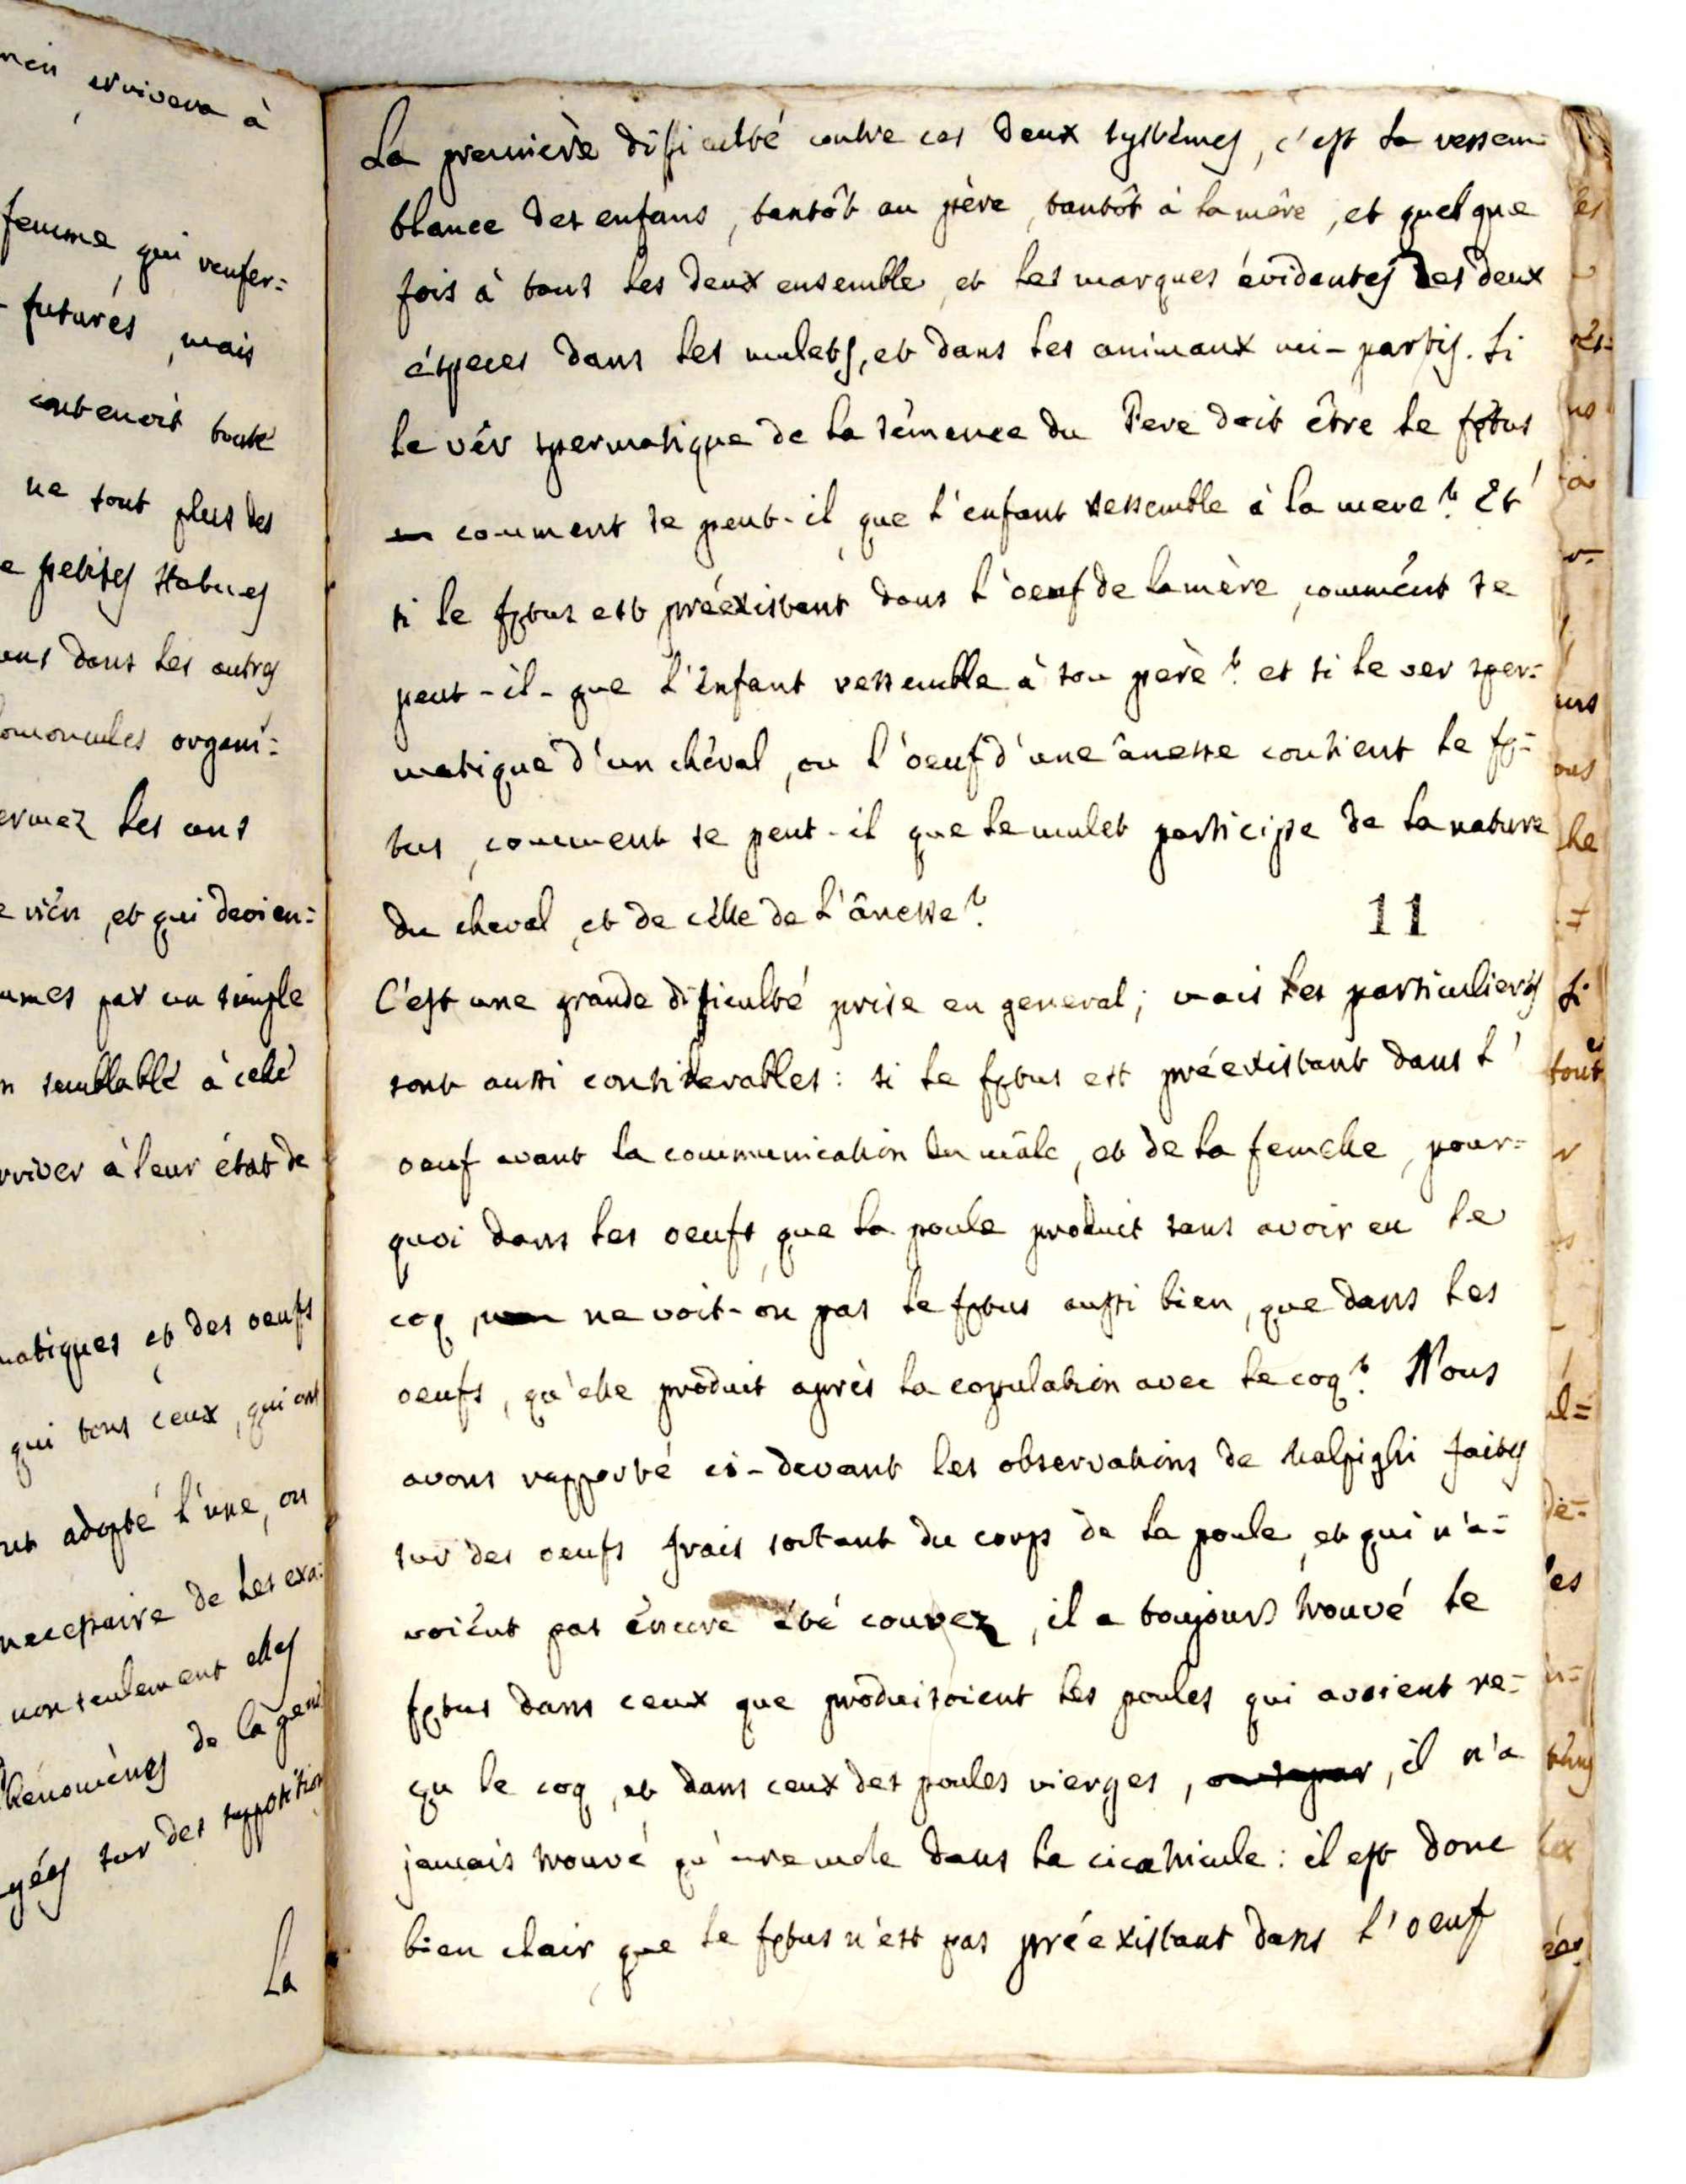 erwivera à
femme, qui renfer=
futurés, mais
contenoit toute
ne sont plus des
petites statues
dans les autres
organi=
ermez les uns
rién, et qui devien=
par un simple
semblablé à celle
rriver à leur état de
matiques et des oeufs
qui tous ceux, qui ont
adopté l'une, ou
necessaire de les exa:
non seulement elles
phénomènes de la gene
sur des suppositions
La
La première dificulté contre ces deux systèmes, c'est la ressem=
blance des enfans, tantôt au père, tantôt à la mère, et quelque
fois à tous les deux ensemble, et les marques évidentes des deux
éspeces dans les mulets, et dans les animaux mi-partis. si
le vér spermatique de la sémence du Pere doit être le fętus
comment se peut-il, que l'enfant ressemble à la mere? Et
si le fętus est préexistent dans l'oeuf de la mère, commént se
peut-il-que l'énfant ressemble à son père? et si le ver sper=
matique d'un chéval, ou l'oeuf d'une ânesse contient le fę=
tus, comment se peut-il que le mulet participe de la nature
du cheval, et de célle de l'ânesse?
11
C'est une grande dificulté prise en general; mais les particuliers
sont aussi considerables: si le fętus est préexistant dans l'
oeuf avant la communication du mâle, et de la femelle, pour=
quoi dans les oeufs, que la poule produit sans avoir eu le
coq, ne voit-on pas le fętus aussi bien, que dans les
oeufs, qu'elle produit après la copulation avec le coq? Nous
avons rapporté ci-devant les observations de Malpighi faites
sur des oeufs frais sortant du corps de la poule, et qui n'a=
voiént pas éncore été couvez, il a toujours trouvé le
fętus dans ceux que produisoient les poules qui avoient re=
çu le coq, et dans ceux des poules vierges, il n'a
jamais trouvé qu'une mole dans la cicatricule: il est donc
bien clair, que le fętus n'est pas préexistant dans l'oeuf